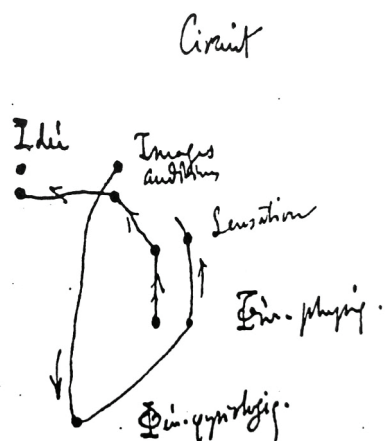 Circuit
Idée
Images
auditives
Sensation
Φén. physiq.
Φén. physiologiq.